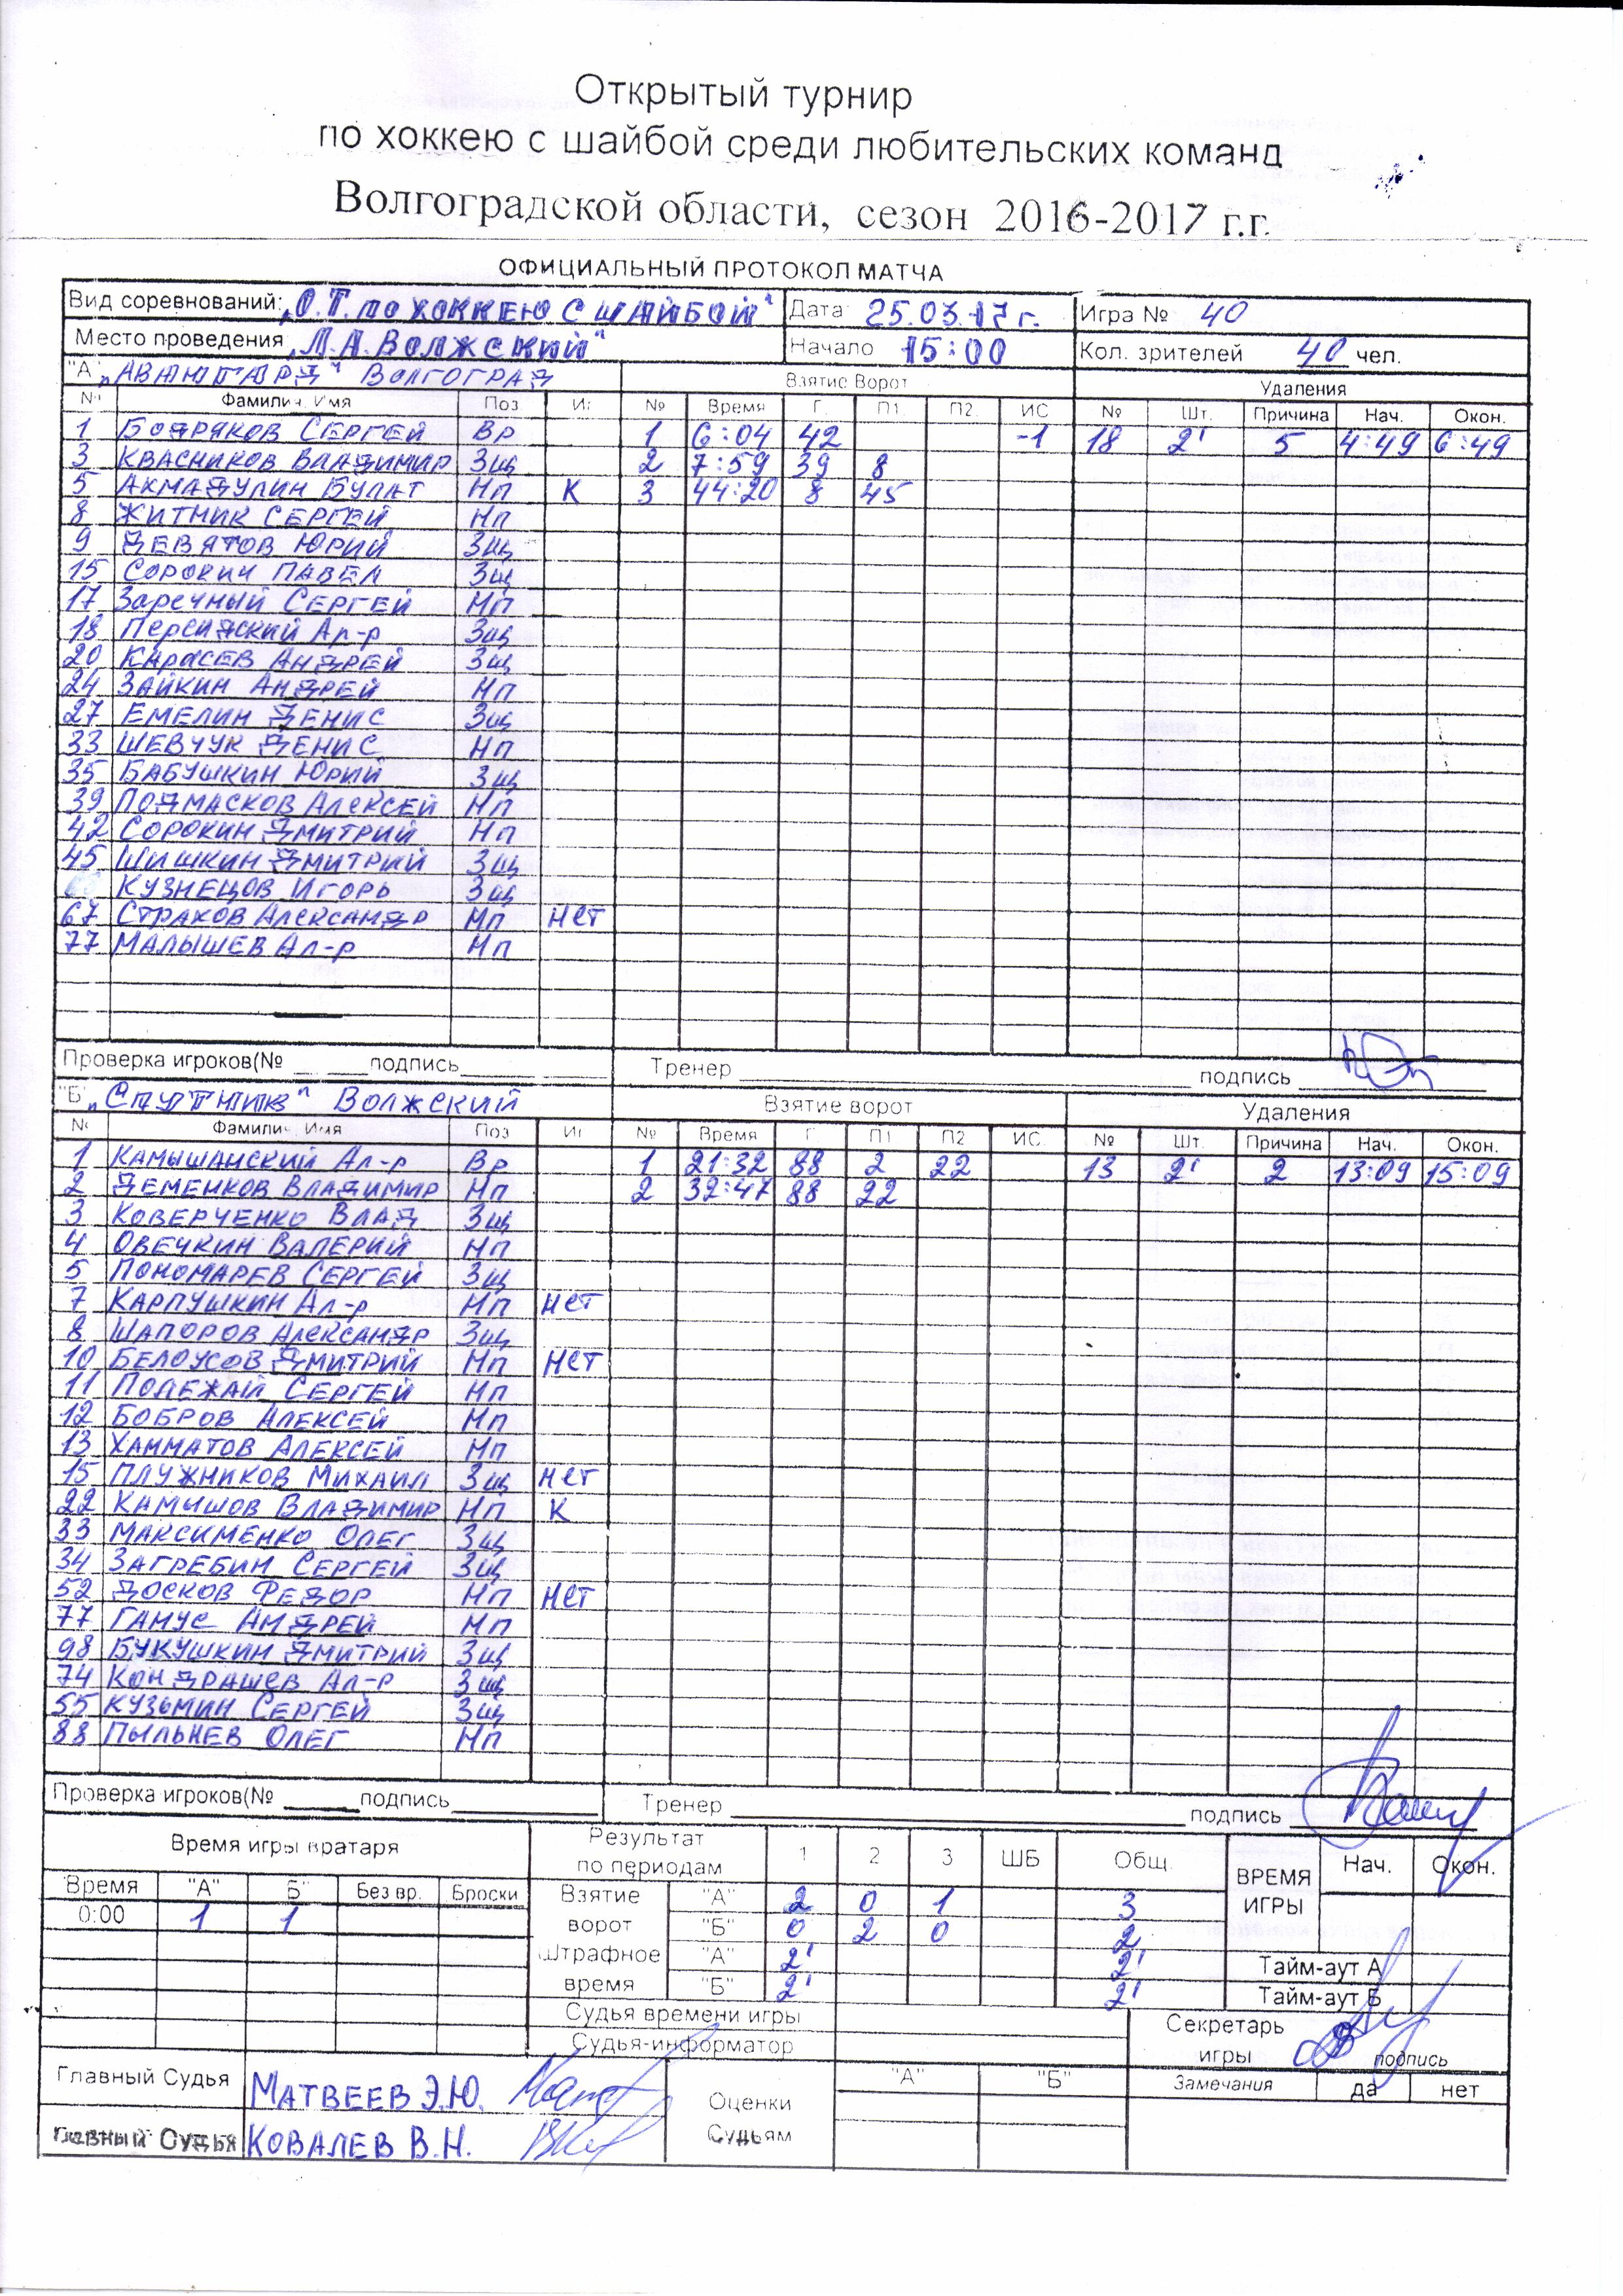 Открытый турнир
по хоккею с шайбой среди любительских команд
Волгоградской области, сезон 2016-2017 г.г.
ОФИЦИАЛЬНЫЙ ПРОТОКОЛ МАТЧА
Вид соревнований: „О.Т. по хоккею с шайбой" Дата 25.03.17г. Игра № 40
Место проведения „Л.А. Волжский" Начало 15:00 Кол. зрителей 40 чел.
"А" „Авангард" Волгоград Взятие Ворот Удаления
№ Фамилия, Имя Поз И № Время Г П1 П2 ИС № Шт. Причина Нач. Окон.
1 Бояряков Сергей Вр 1 6:04 42 -1 18 2' 5 4:49 6:49
3 Квасников Владимир Зщ 2 7:59 39 8
5 Акмадулин Булат Нп К 3 44:20 8 45
8 Житник Сергей Нп
9 Девятов Юрий Зщ
15 Сорокин Павел Зщ
17 Заречный Сергей Нп
18 Персидский Ал-р Зщ
20 Карасев Андрей Зщ
24 Зайкин Андрей Нп
27 Емелин Денис Зщ
33 Шевчук Денис Нп
35 Бабушкин Юрий Зщ
39 Подмасков Алексей Нп
42 Сорокин Дмитрий Нп
45 Шишкин Дмитрий Зщ
Кузнецов Игорь Зщ
67 Страхов Александр Нп нет
77 Малышев Ал-р Нп
Проверка игроков(№ подпись Тренер подпись
"Б" „Спутник" Волжский Взятие ворот Удаления
№ Фамилия, Имя Поз И № Время Г П1 П2 ИС № Шт. Причина Нач. Окон.
1 Камышанский Ал-р Вр 1 21:32 88 2 22 13 2' 2 13:09 15:09
2 Деменков Владимир Нп 2 32:47 88 22
3 Коверченко Влад Зщ
4 Овечкин Валерий Нп
5 Пономарев Сергей Зщ
7 Карпушкин Ал-р Нп нет
8 Шапоров Александр Зщ
10 Белоусов Дмитрий Нп нет
11 Полежай Сергей Нп
12 Бобров Алексей Нп
13 Хамматов Алексей Нп
15 Плужников Михаил Зщ нет
22 Камышов Владимир Нп К
33 Максименко Олег Зщ
34 Загребин Сергей Зщ
52 Досков Федор Нп нет
77 Гамус Андрей Нп
98 Букушкин Дмитрий Зщ
74 Кондрашев Ал-р Зщ
55 Кузьмин Сергей Зщ
88 Пыльнев Олег Нп
Проверка игроков(№ подпись Тренер подпись
Время игры вратаря Результат по периодам 1 2 3 ШБ Общ. ВРЕМЯ ИГРЫ Нач. Окон.
Время "А" Б" Без вр. Броски Взятие ворот "А" 2 0 1 3
0:00 1 1 "Б" 0 2 0 2
Штрафное время "А" 2' 2' Тайм-аут А
"Б" 2' 2' Тайм-аут Б
Судья времени игры Секретарь игры подпись
Судья-информатор
Главный Судья Матвеев Э.Ю. Оценки Судьям "А" "Б" Замечания да нет
Главный Судья Ковалев В.Н.